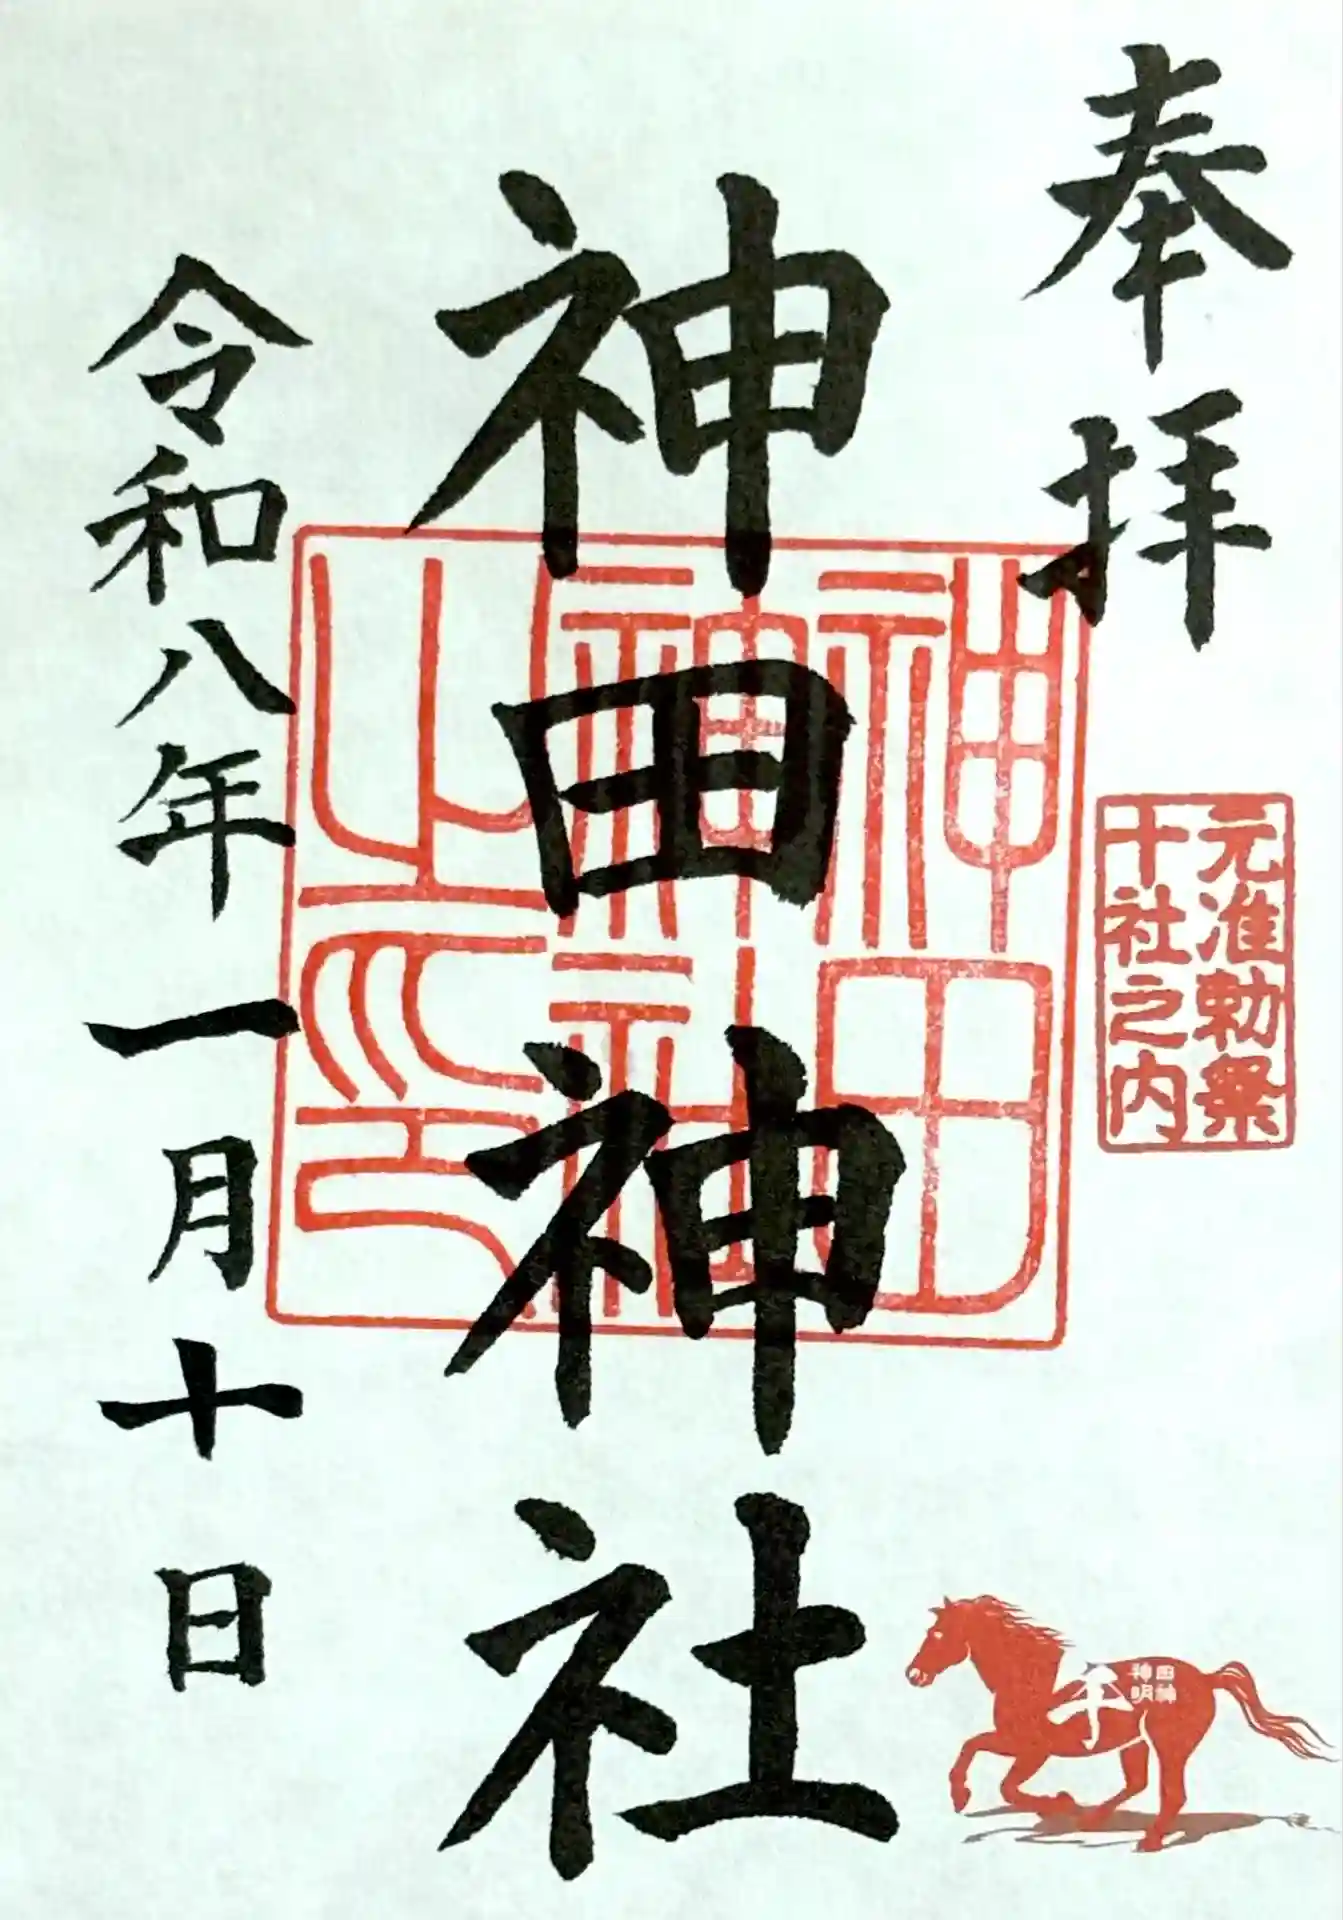 奉拝
元准勅祭
十社之内
神田神社
神田
神社
之印
令和八年一月十日
午
田神
神明